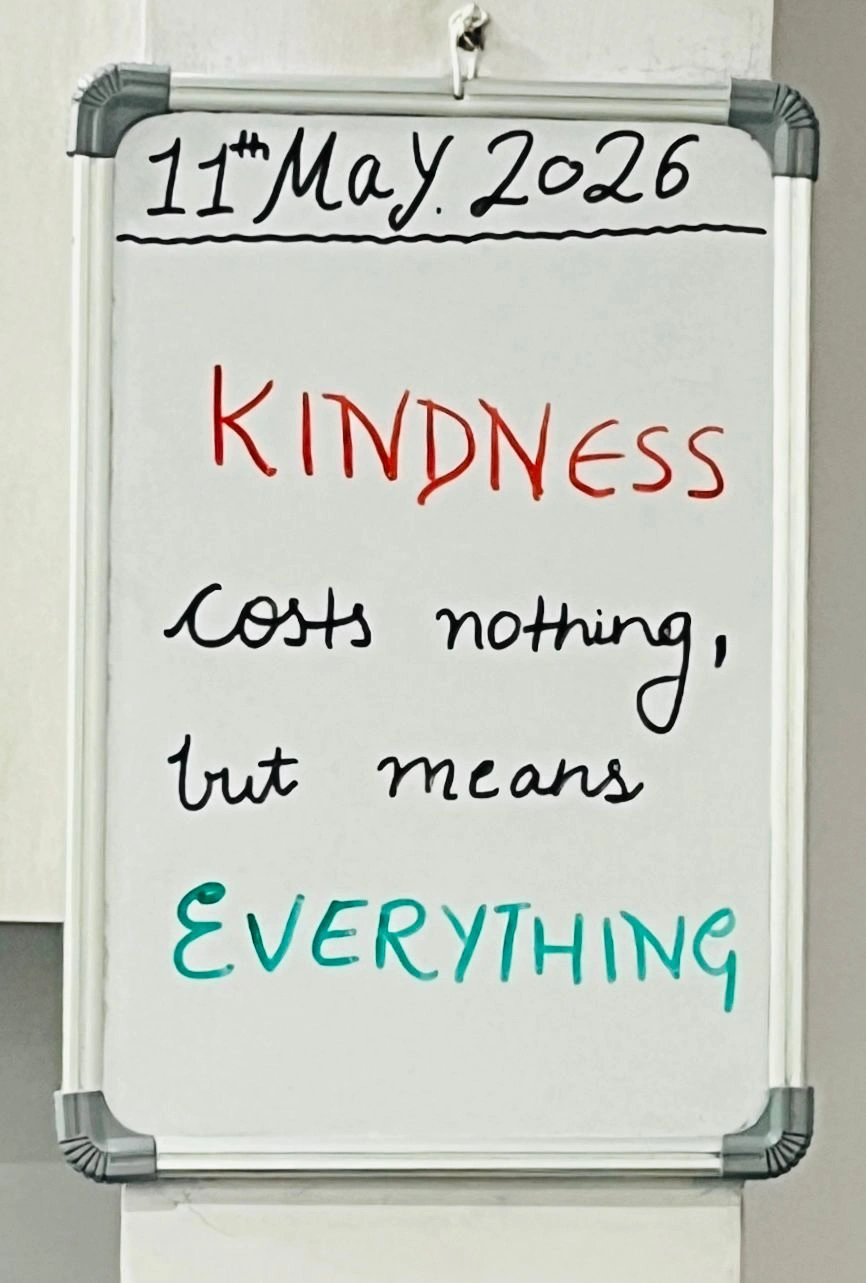 11th May. 2026
KINDNESS
costs nothing,
but means
EVERYTHING